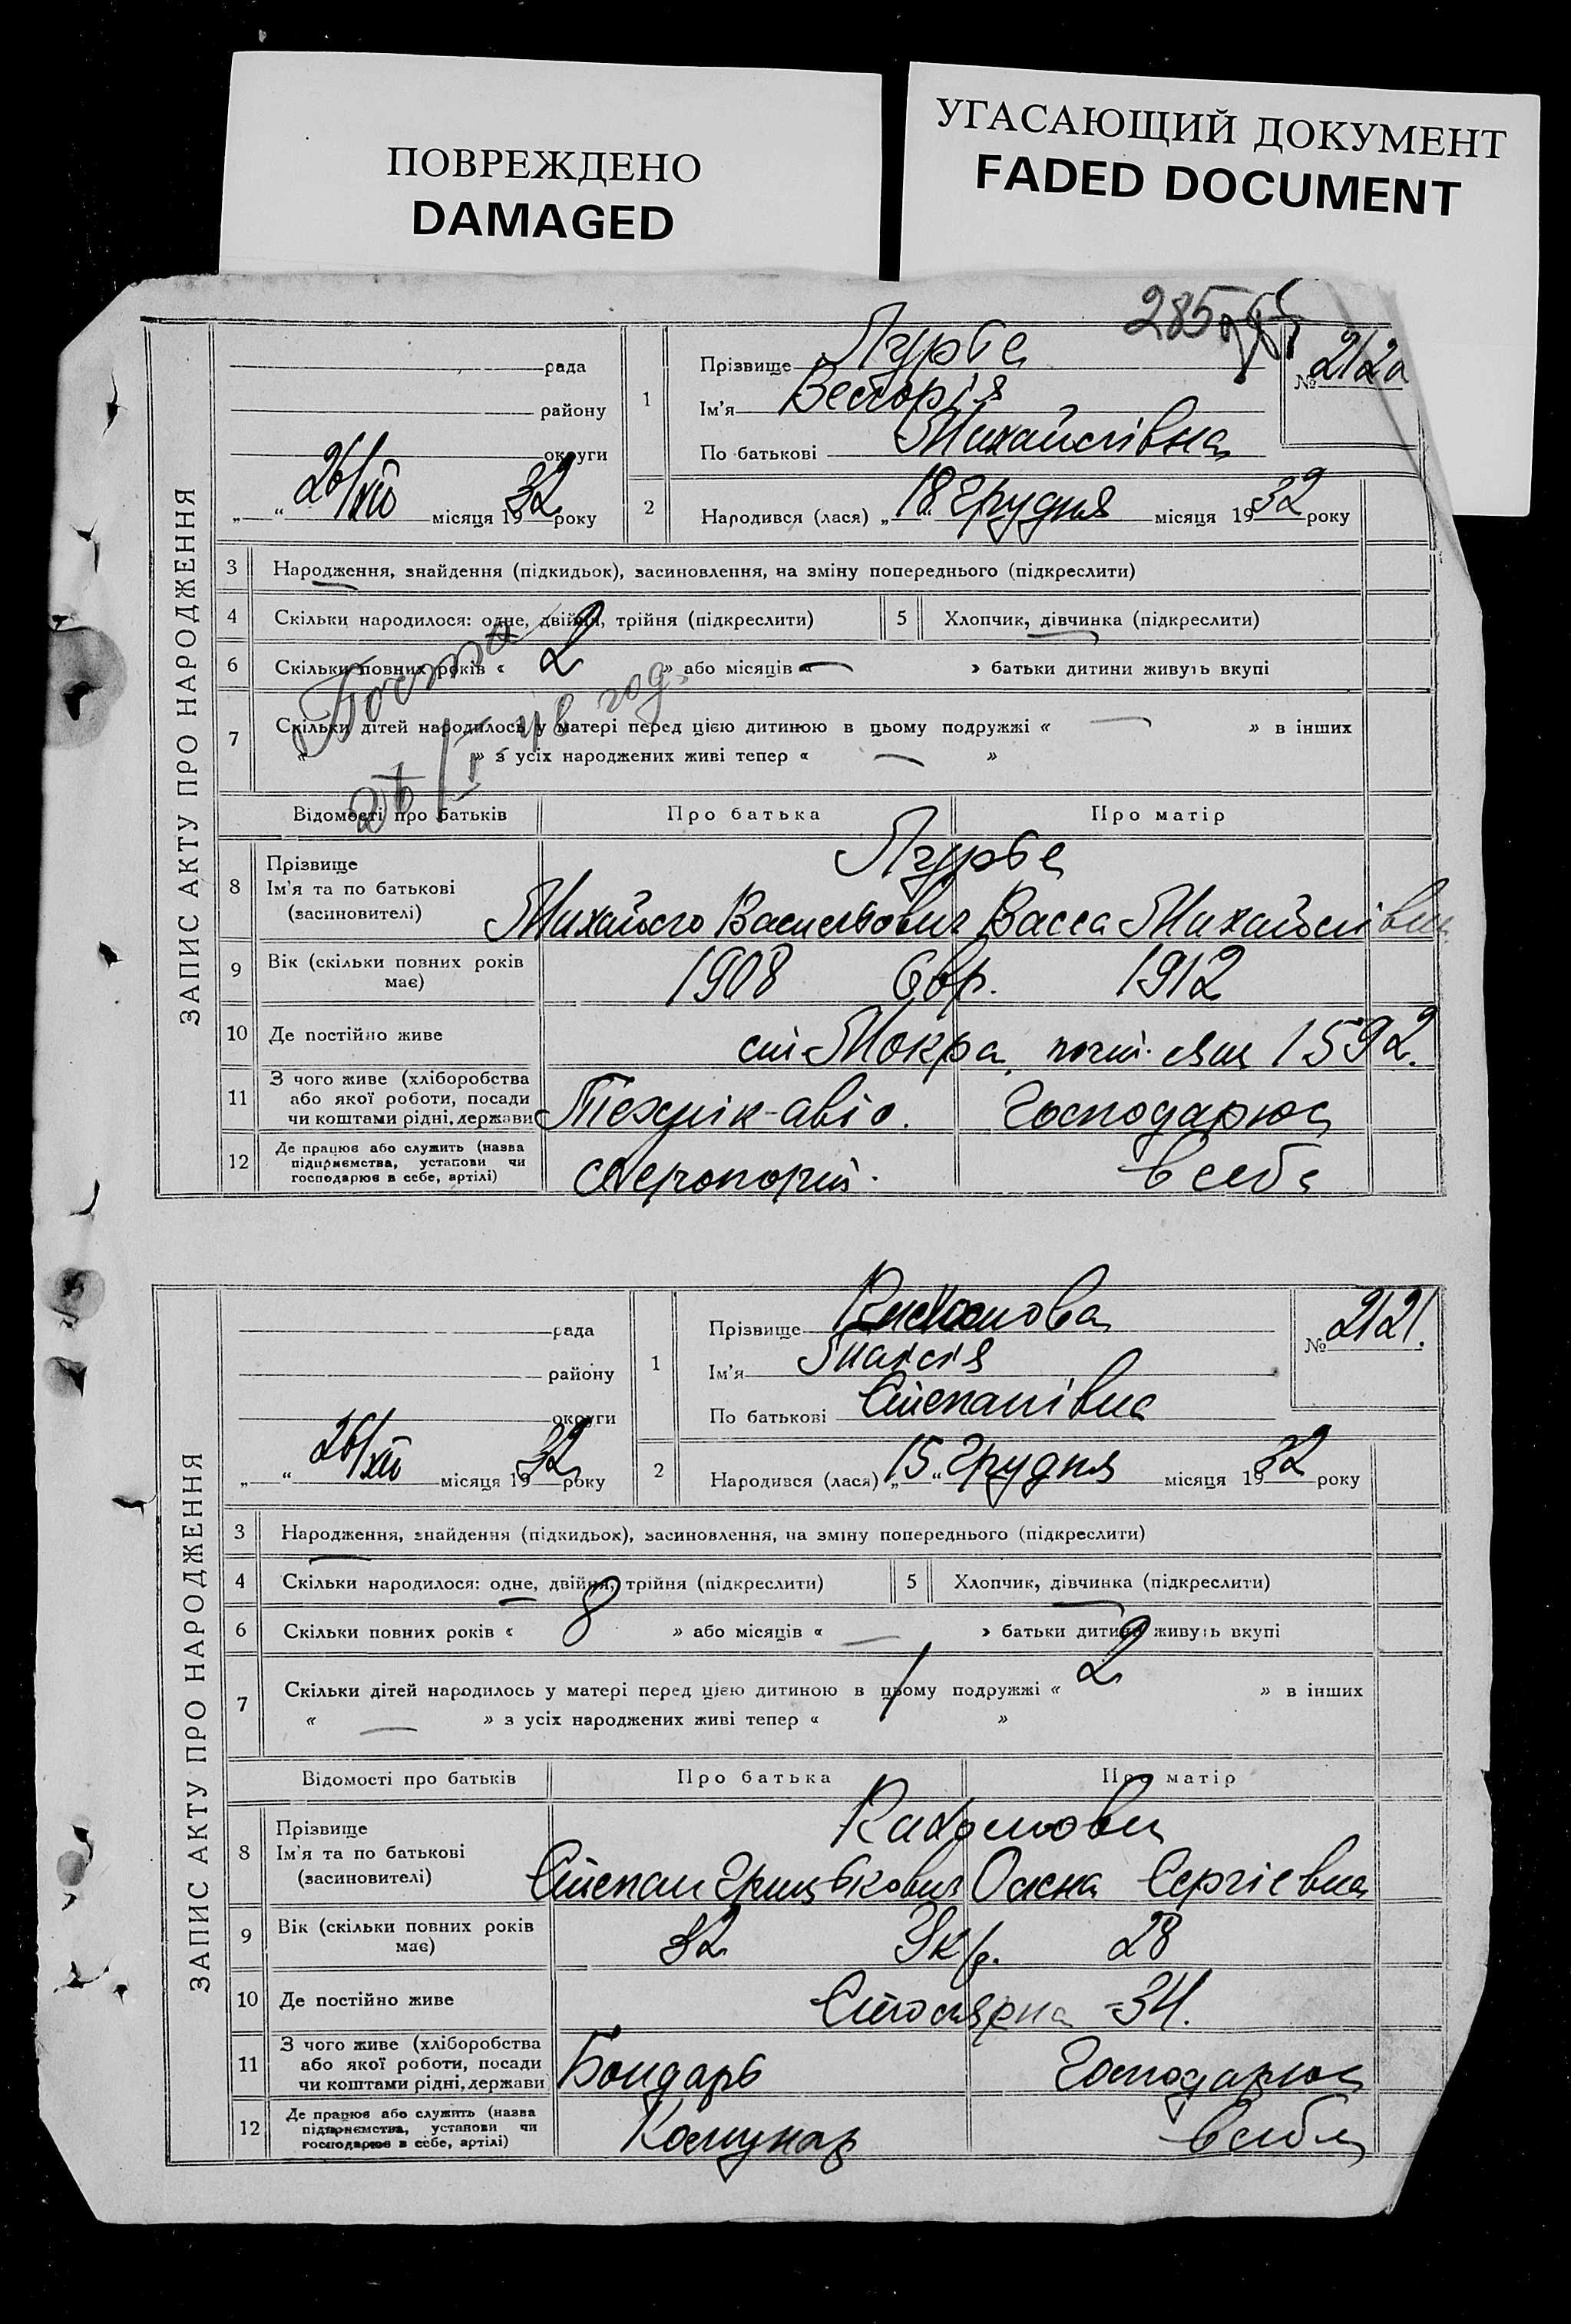 ПОВРЕЖДЕНО
DAMAGED
УГАСАЮЩИЙ ДОКУМЕНТ
FADED DOCUMENT
285
ЗАПИС АКТУ ПРО НАРОДЖЕННЯ
рада
району
округи
„ “ 26/XII місяця 1932 року
1
Прізвище
Ім'я
По батькові Михайлівна
№ 2120
2
Народився (лася) „18“ Грудня місяця 1932 року
3 Народження, знайдення (підкидьок), засиновлення, на зміну попереднього (підкреслити)
4 Скільки народилося: одне, двійня, трійня (підкреслити)
5 Хлопчик, дівчинка (підкреслити)
6 Скільки повних років « 2 » або місяців « — » батьки дитини живуть вкупі
7 Скільки дітей народилось у матері перед цією дитиною в цьому подружжі « — » в інших
« » з усіх народжених живі тепер « — »
Відомості про батьків Про батька Про матір
8 Прізвище
Ім'я та по батькові
(засиновителі)
Михайло Васильович Васса Михайлівна
9 Вік (скільки повних років має) 1908 Євр. 1912
10 Де постійно живе ст Мокра, 1592.
11 З чого живе (хліборобства або якої роботи, посади чи коштами рідні, держави Технік-авіо. Господарює
12 Де працює або служить (назва підприємства, установи чи господарює в себе, артілі) Аеропорт. в себе
ЗАПИС АКТУ ПРО НАРОДЖЕННЯ
рада
району
округи
„ “ 26/XII місяця 1932 року
1
Прізвище
Ім'я Таїсія
По батькові Степанівна
№ 2121.
2
Народився (лася) „15“ Грудня місяця 1932 року
3 Народження, знайдення (підкидьок), засиновлення, на зміну попереднього (підкреслити)
4 Скільки народилося: одне, двійня, трійня (підкреслити)
5 Хлопчик, дівчинка (підкреслити)
6 Скільки повних років « 8 » або місяців « — » батьки дитини живуть вкупі
7 Скільки дітей народилось у матері перед цією дитиною в цьому подружжі « 2 » в інших
« — » з усіх народжених живі тепер « 1 »
Відомості про батьків Про батька Про матір
8 Прізвище
Ім'я та по батькові
(засиновителі)
Степан Грицькович Олена Сергієвна
9 Вік (скільки повних років має) 32 Укр. 28
10 Де постійно живе Столярна - 34.
11 З чого живе (хліборобства або якої роботи, посади чи коштами рідні, держави Бондарь Господарює
12 Де працює або служить (назва підприємства, установи чи господарює в себе, артілі) Комунар в себе